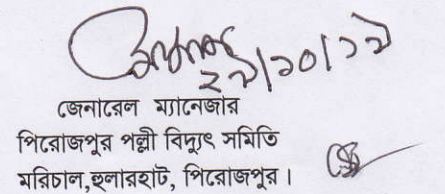 ২৯/১০/১৯
জেনারেল ম্যানেজার
পিরোজপুর পল্লী বিদ্যুৎ সমিতি
মরিচাল,হুলারহাট, পিরোজপুর।